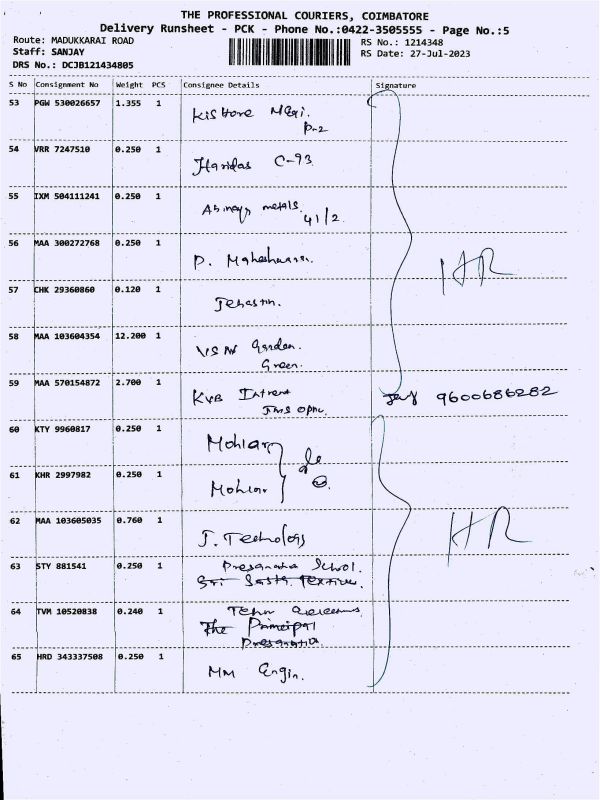 THE PROFESSIONAL COURIERS, COIMBATORE
Delivery Runsheet - PCK - Phone No.:0422-3505555 - Page No.:5
Route: MADUKKARAI ROAD RS No.: 1214348
Staff: SANJAY RS Date: 27-Jul-2023
DRS No.: DCJB121434805
S No Consignment No Weight PCS Consignee Details Signature
53 PGW 530026657 1.355 1 Kishore
P-2
54 VRR 7247510 0.250 1 Haridas C-93
55 IXM 504111241 0.250 1 metals
41/2
56 MAA 300272768 0.250 1 P.
HR
57 CHK 29360860 0.120 1
58 MAA 103604354 12.200 1 Garden
Green.
59 MAA 570154872 2.700 1 KVB 9600686282
60 KTY 9960817 0.250 1 Mohlar
61 KHR 2997982 0.250 1 Mohlar
62 MAA 103605035 0.760 1 J. Technology
HR
63 STY 881541 0.250 1 School.
Sri Sasta Textiles
64 TVM 10520838 0.240 1
The Principal
65 HRD 343337508 0.250 1 MM Engin.